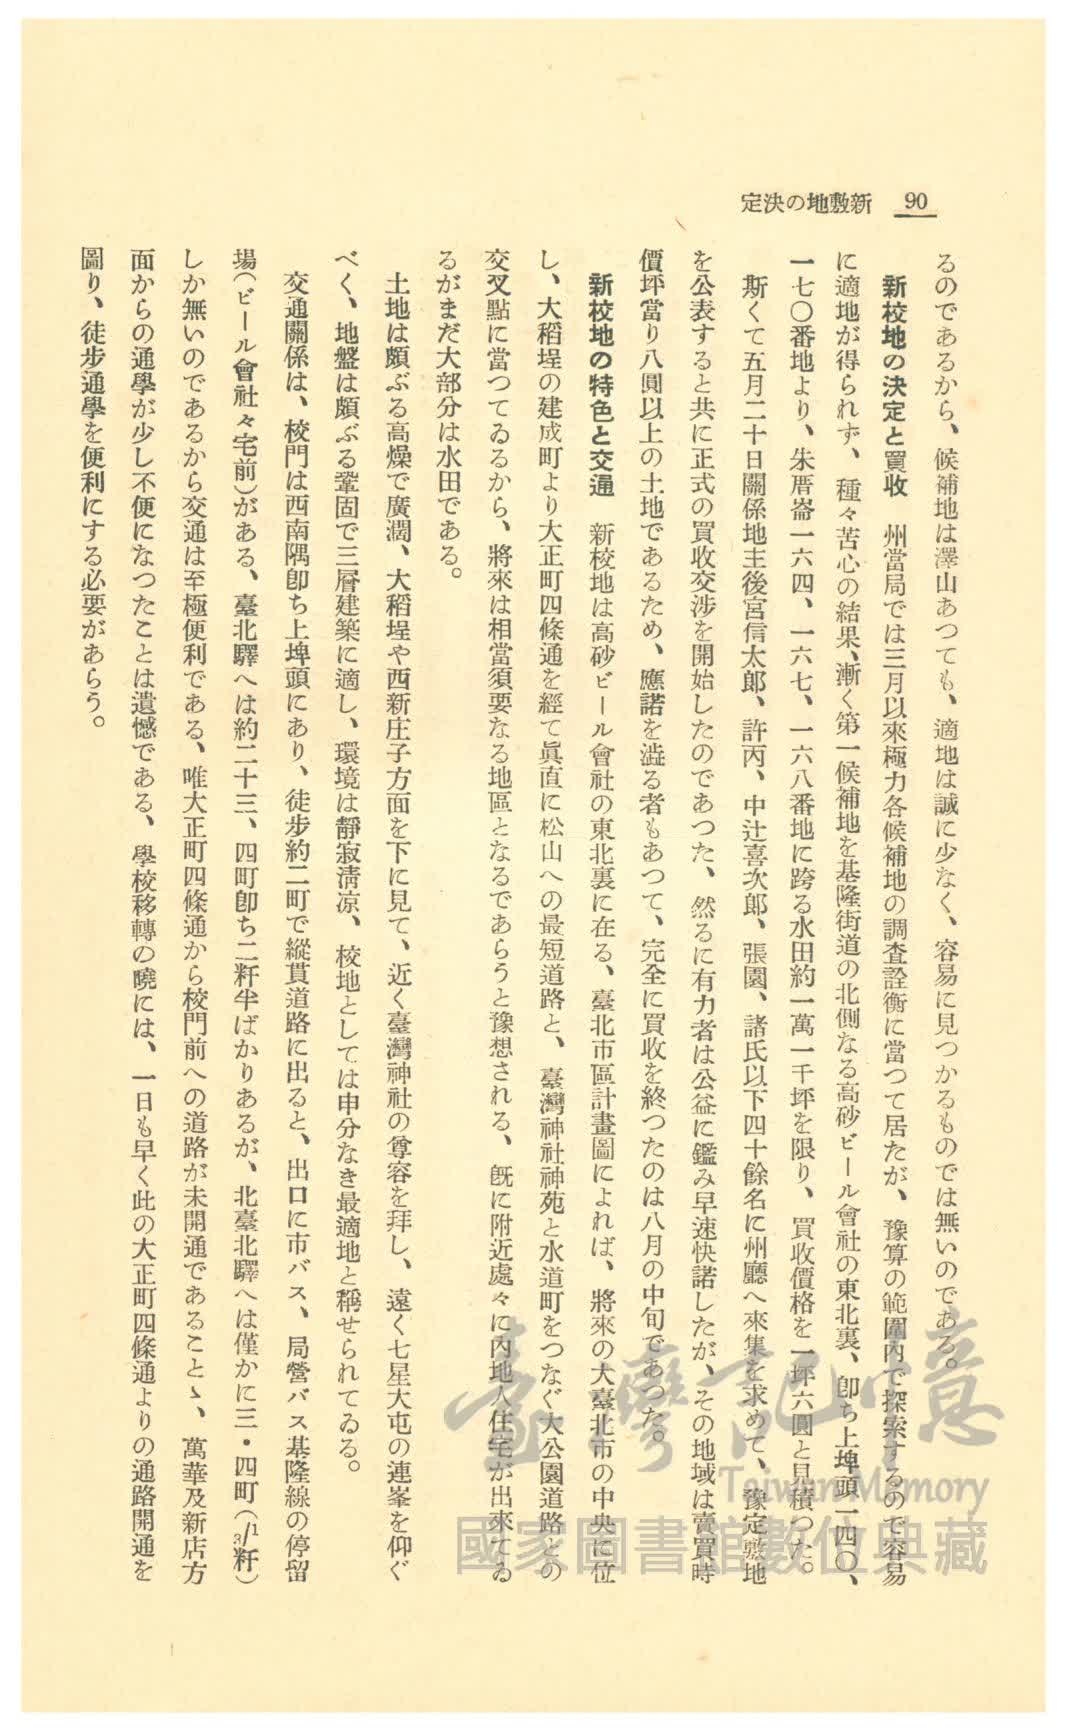 90 新敷地の決定
るのであるから、候補地は澤山あつても、適地は誠に少なく、容易に見つかるものでは無いのである。
新校地の決定と買收　州當局では三月以來極力各候補地の調査詮衡に當つて居たが、豫算の範圍内で探索するので容易
に適地が得られず、種々苦心の結果、漸く第一候補地を基隆街道の北側なる高砂ビール會社の東北裏、卽ち上埤頭一四〇、
一七〇番地より、朱厝崙一六四、一六七、一六八番地に跨る水田約一萬一千坪を限り、買收價格を一坪六圓と見積つた。
斯くて五月二十日關係地主後宮信太郎、許丙、中辻喜次郎、張園、諸氏以下四十餘名に州廳へ來集を求めて、豫定敷地
を公表すると共に正式の買收交涉を開始したのであつた、然るに有力者は公益に鑑み早速快諾したが、その地域は賣買時
價坪當り八圓以上の土地であるため、應諾を澁る者もあつて、完全に買收を終つたのは八月の中旬であつた。
新校地の特色と交通　新校地は高砂ビール會社の東北裏に在る、臺北市區計畫圖によれば、將來の大臺北市の中央に位
し、大稻埕の建成町より大正町四條通を經て眞直に松山への最短道路と、臺灣神社神苑と水道町をつなぐ大公園道路との
交叉點に當つてゐるから、將來は相當須要なる地區となるであらうと豫想される、旣に附近處々に内地人住宅が出來てゐ
るがまだ大部分は水田である。
土地は頗ぶる高燥で廣濶、大稻埕や西新庄子方面を下に見て、近く臺灣神社の尊容を拜し、遠く七星大屯の連峯を仰ぐ
べく、地盤は頗ぶる鞏固で三層建築に適し、環境は靜寂淸凉、校地としては申分なき最適地と稱せられてゐる。
交通關係は、校門は西南隅卽ち上埤頭にあり、徒步約二町で縱貫道路に出ると、出口に市バス、局營バス基隆線の停留
場(ビール會社々宅前)がある、臺北驛へは約二十三、四町卽ち二粁半ばかりあるが、北臺北驛へは僅かに三・四町(1/3粁)
しか無いのであるから交通は至極便利である、唯大正町四條通から校門前への道路が未開通であることゝ、萬華及新店方
面からの通學が少し不便になつたことは遺憾である、學校移轉の曉には、一日も早く此の大正町四條通よりの通路開通を
圖り、徒步通學を便利にする必要があらう。
臺灣記憶
Taiwan Memory
國家圖書館數位典藏